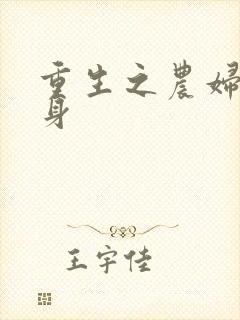 重生之農婦
身
王宇佳